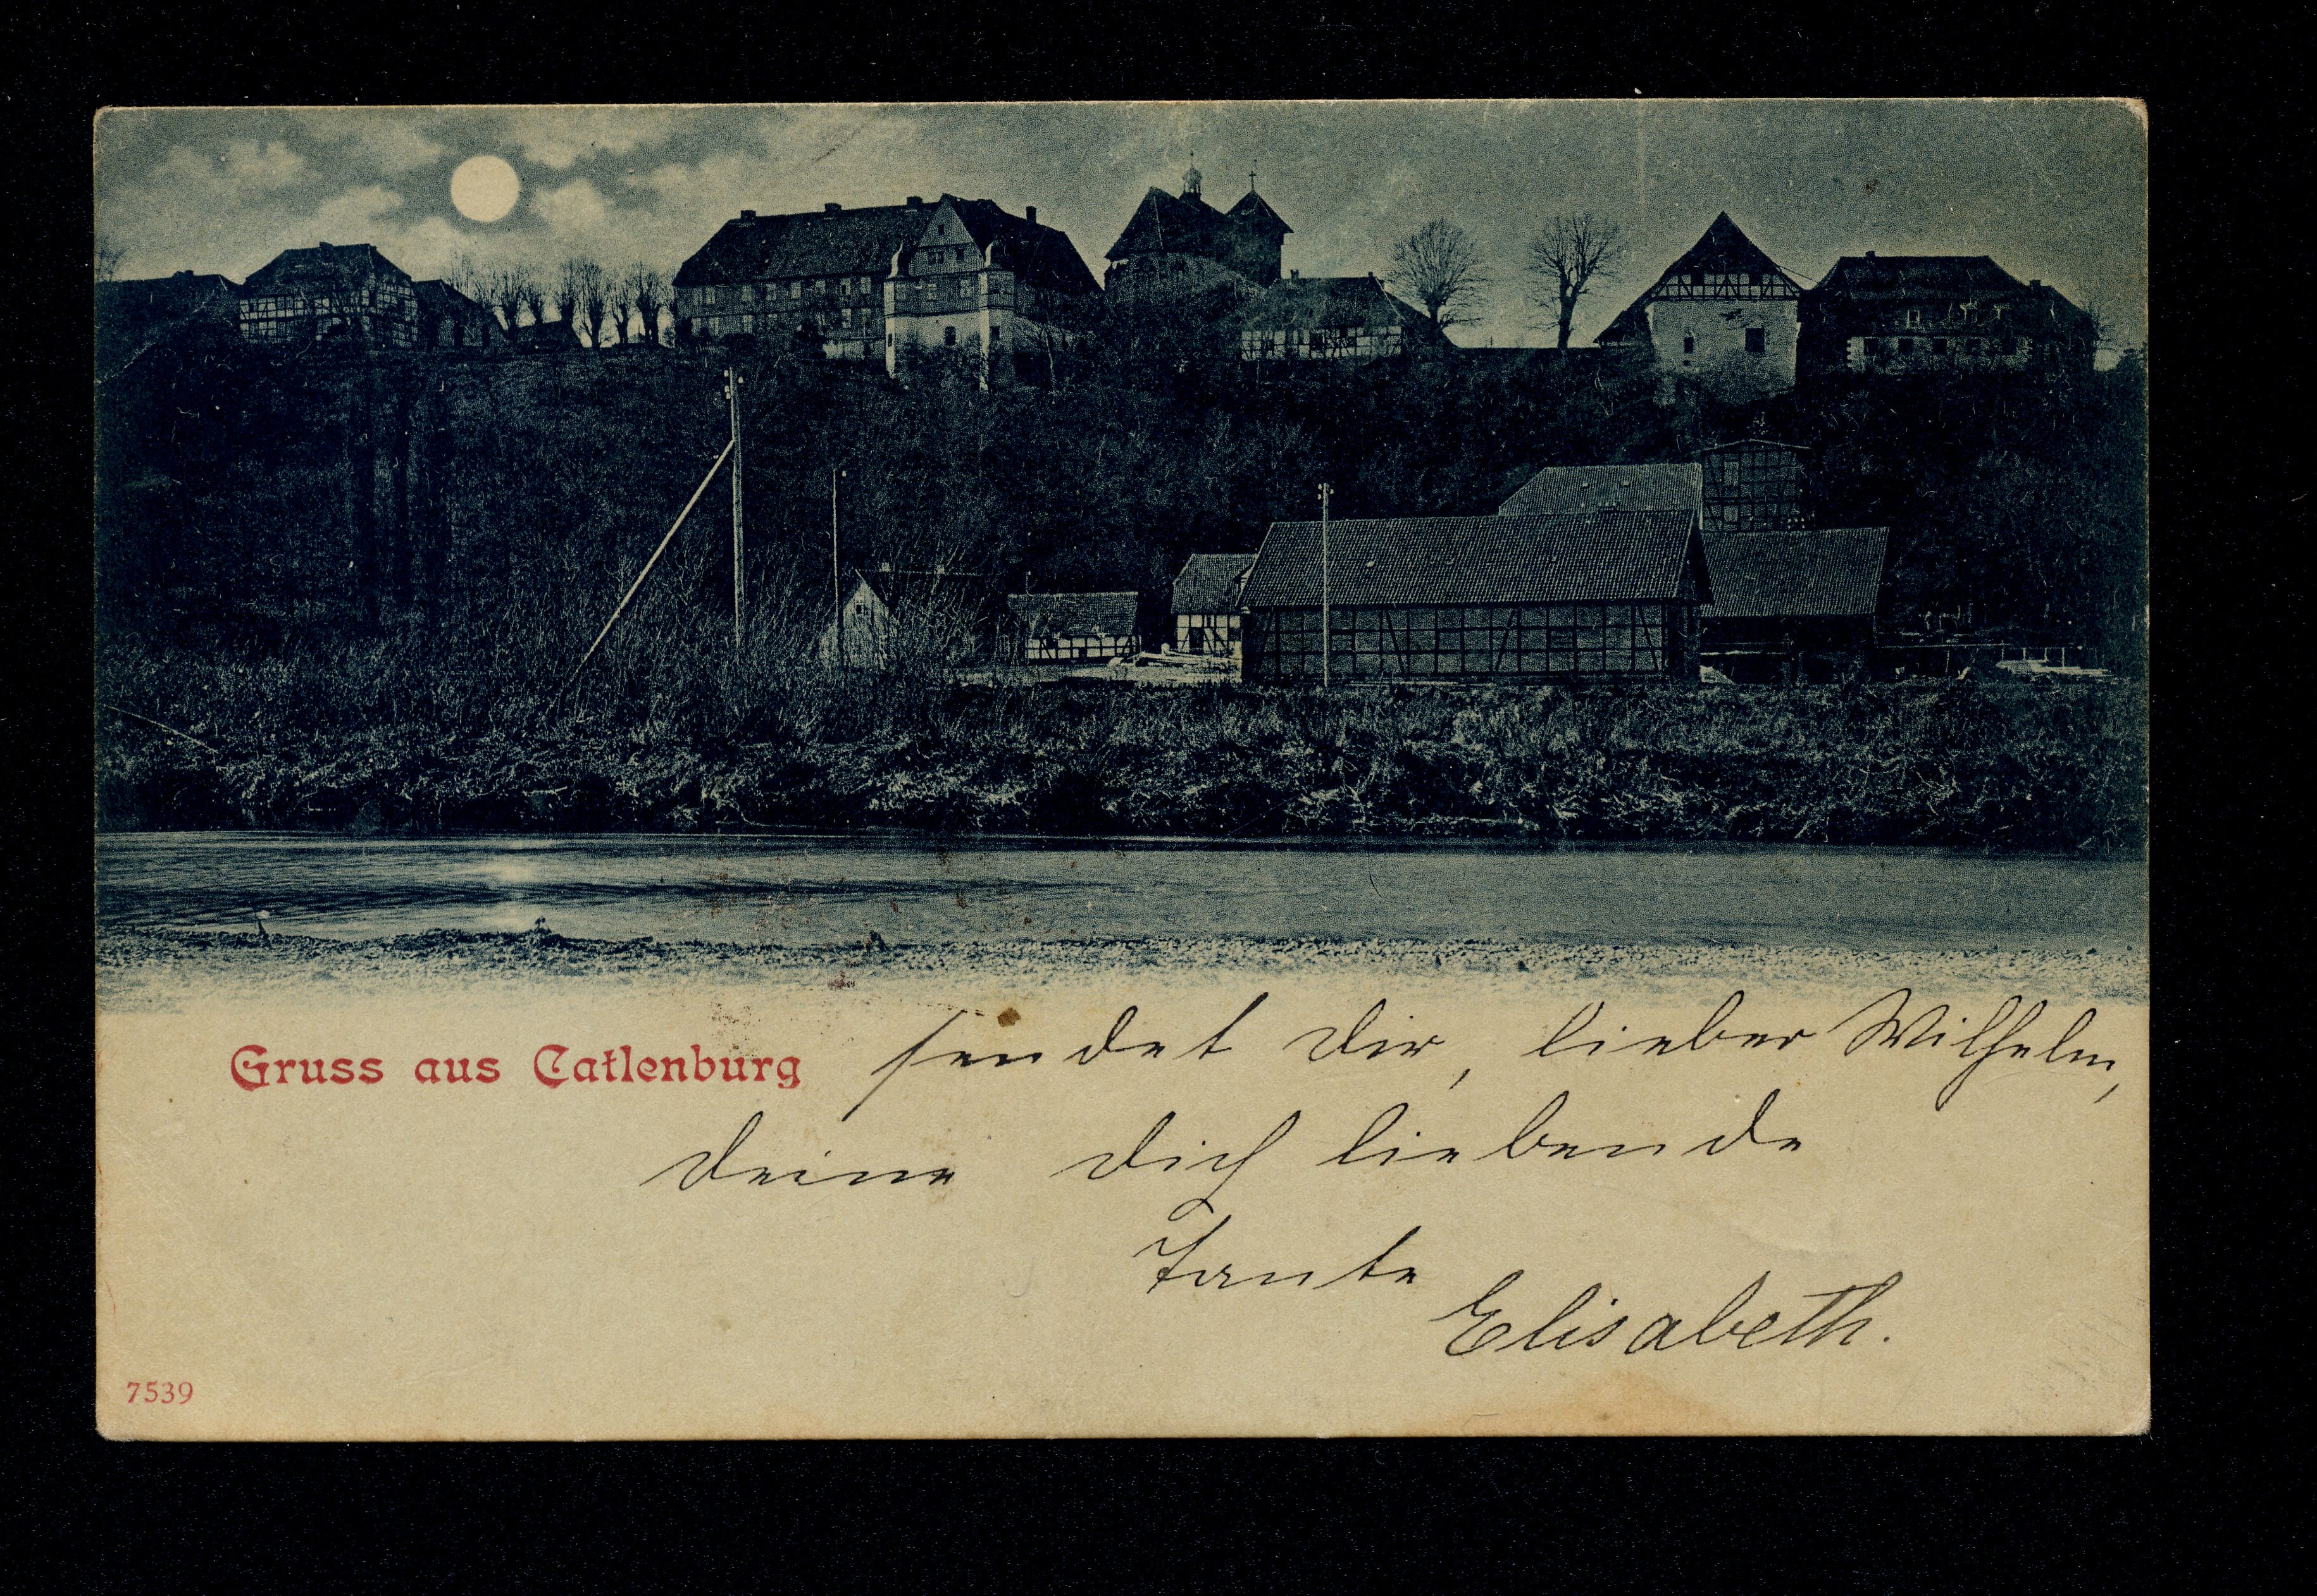 Gruss aus Catlenburg sendet Dir, lieber Wilhelm,
Deine Dich liebende
Tante
Elisabeth.
7539